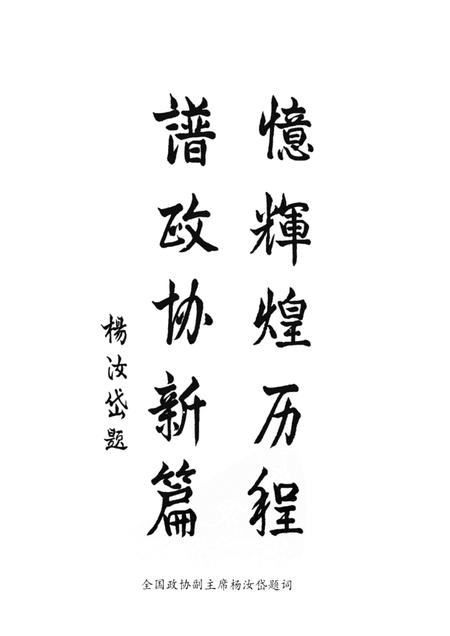 憶輝煌历程
譜政协新篇
楊汝岱题
全国政协副主席杨汝岱题词